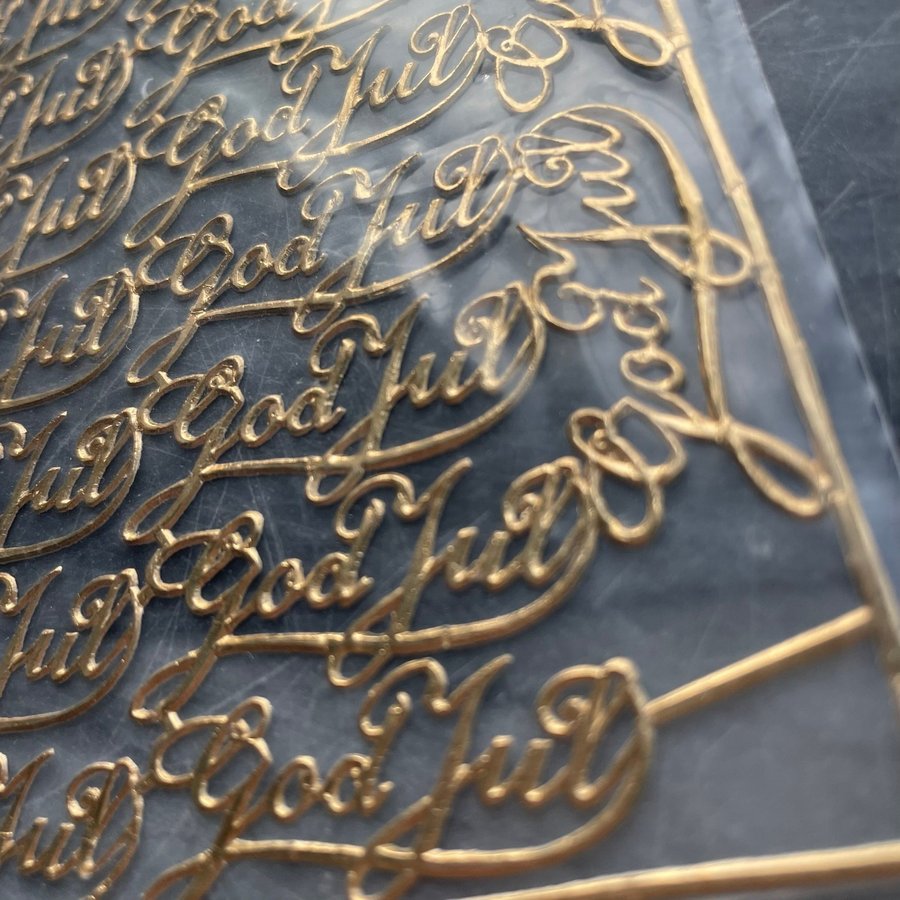 God
Jul God Jul
Jul God Jul
Jul God Jul
Jul God Jul
Jul God Jul
Jul God Jul
God Jul